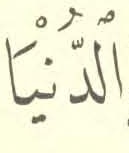 الْدُّنْيَا